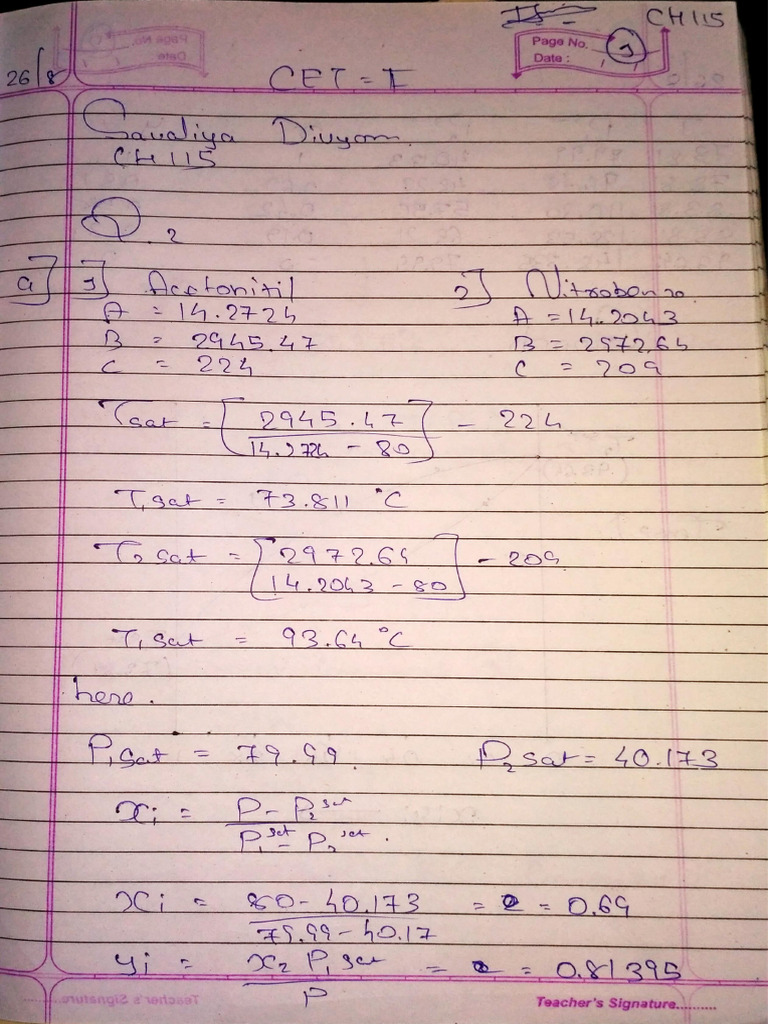 CH115
Page No. 1
Date :
26/8
CET - I
Savaliya Divyam
CH115
Q.2
a] 1] Acetonitil 2] Nitrobenzo
A = 14.2724 A = 14.2043
B = 2945.47 B = 2972.64
C = 224 C = 209
Tsat = [ 2945.47 / 14.2724 - 80 ] - 224
T1sat = 73.811 °C
T2sat = [ 2972.64 / 14.2043 - 80 ] - 209
T1sat = 93.64 °C
here.
P1sat = 79.99 P2sat = 40.173
xi = P - P2sat / P1sat - P2sat .
xi = 80 - 40.173 / 79.99 - 40.17 = = 0.69
yi = x2 P1sat / P = = 0.81395
Teacher's Signature..........